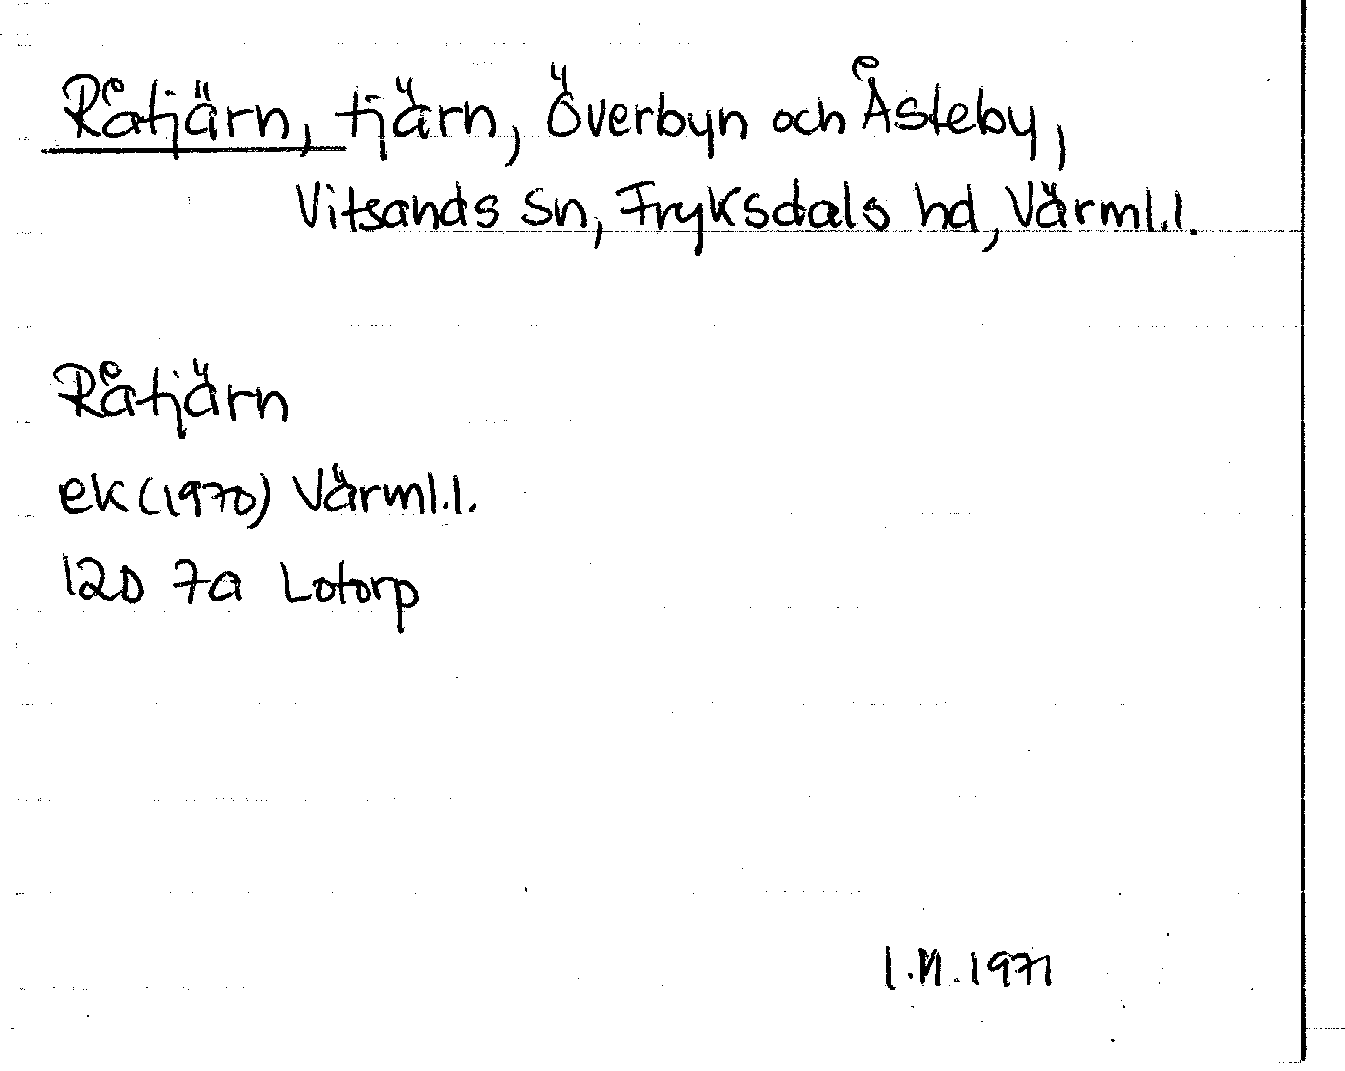 Råtjärn, tjärn, Överbyn och Åsteby,
Vitsands sn, Fryksdals hd, Värml.l.
Råtjärn
ek (1970) Värml.l.
12D 7a Lotorp
I.N.1971